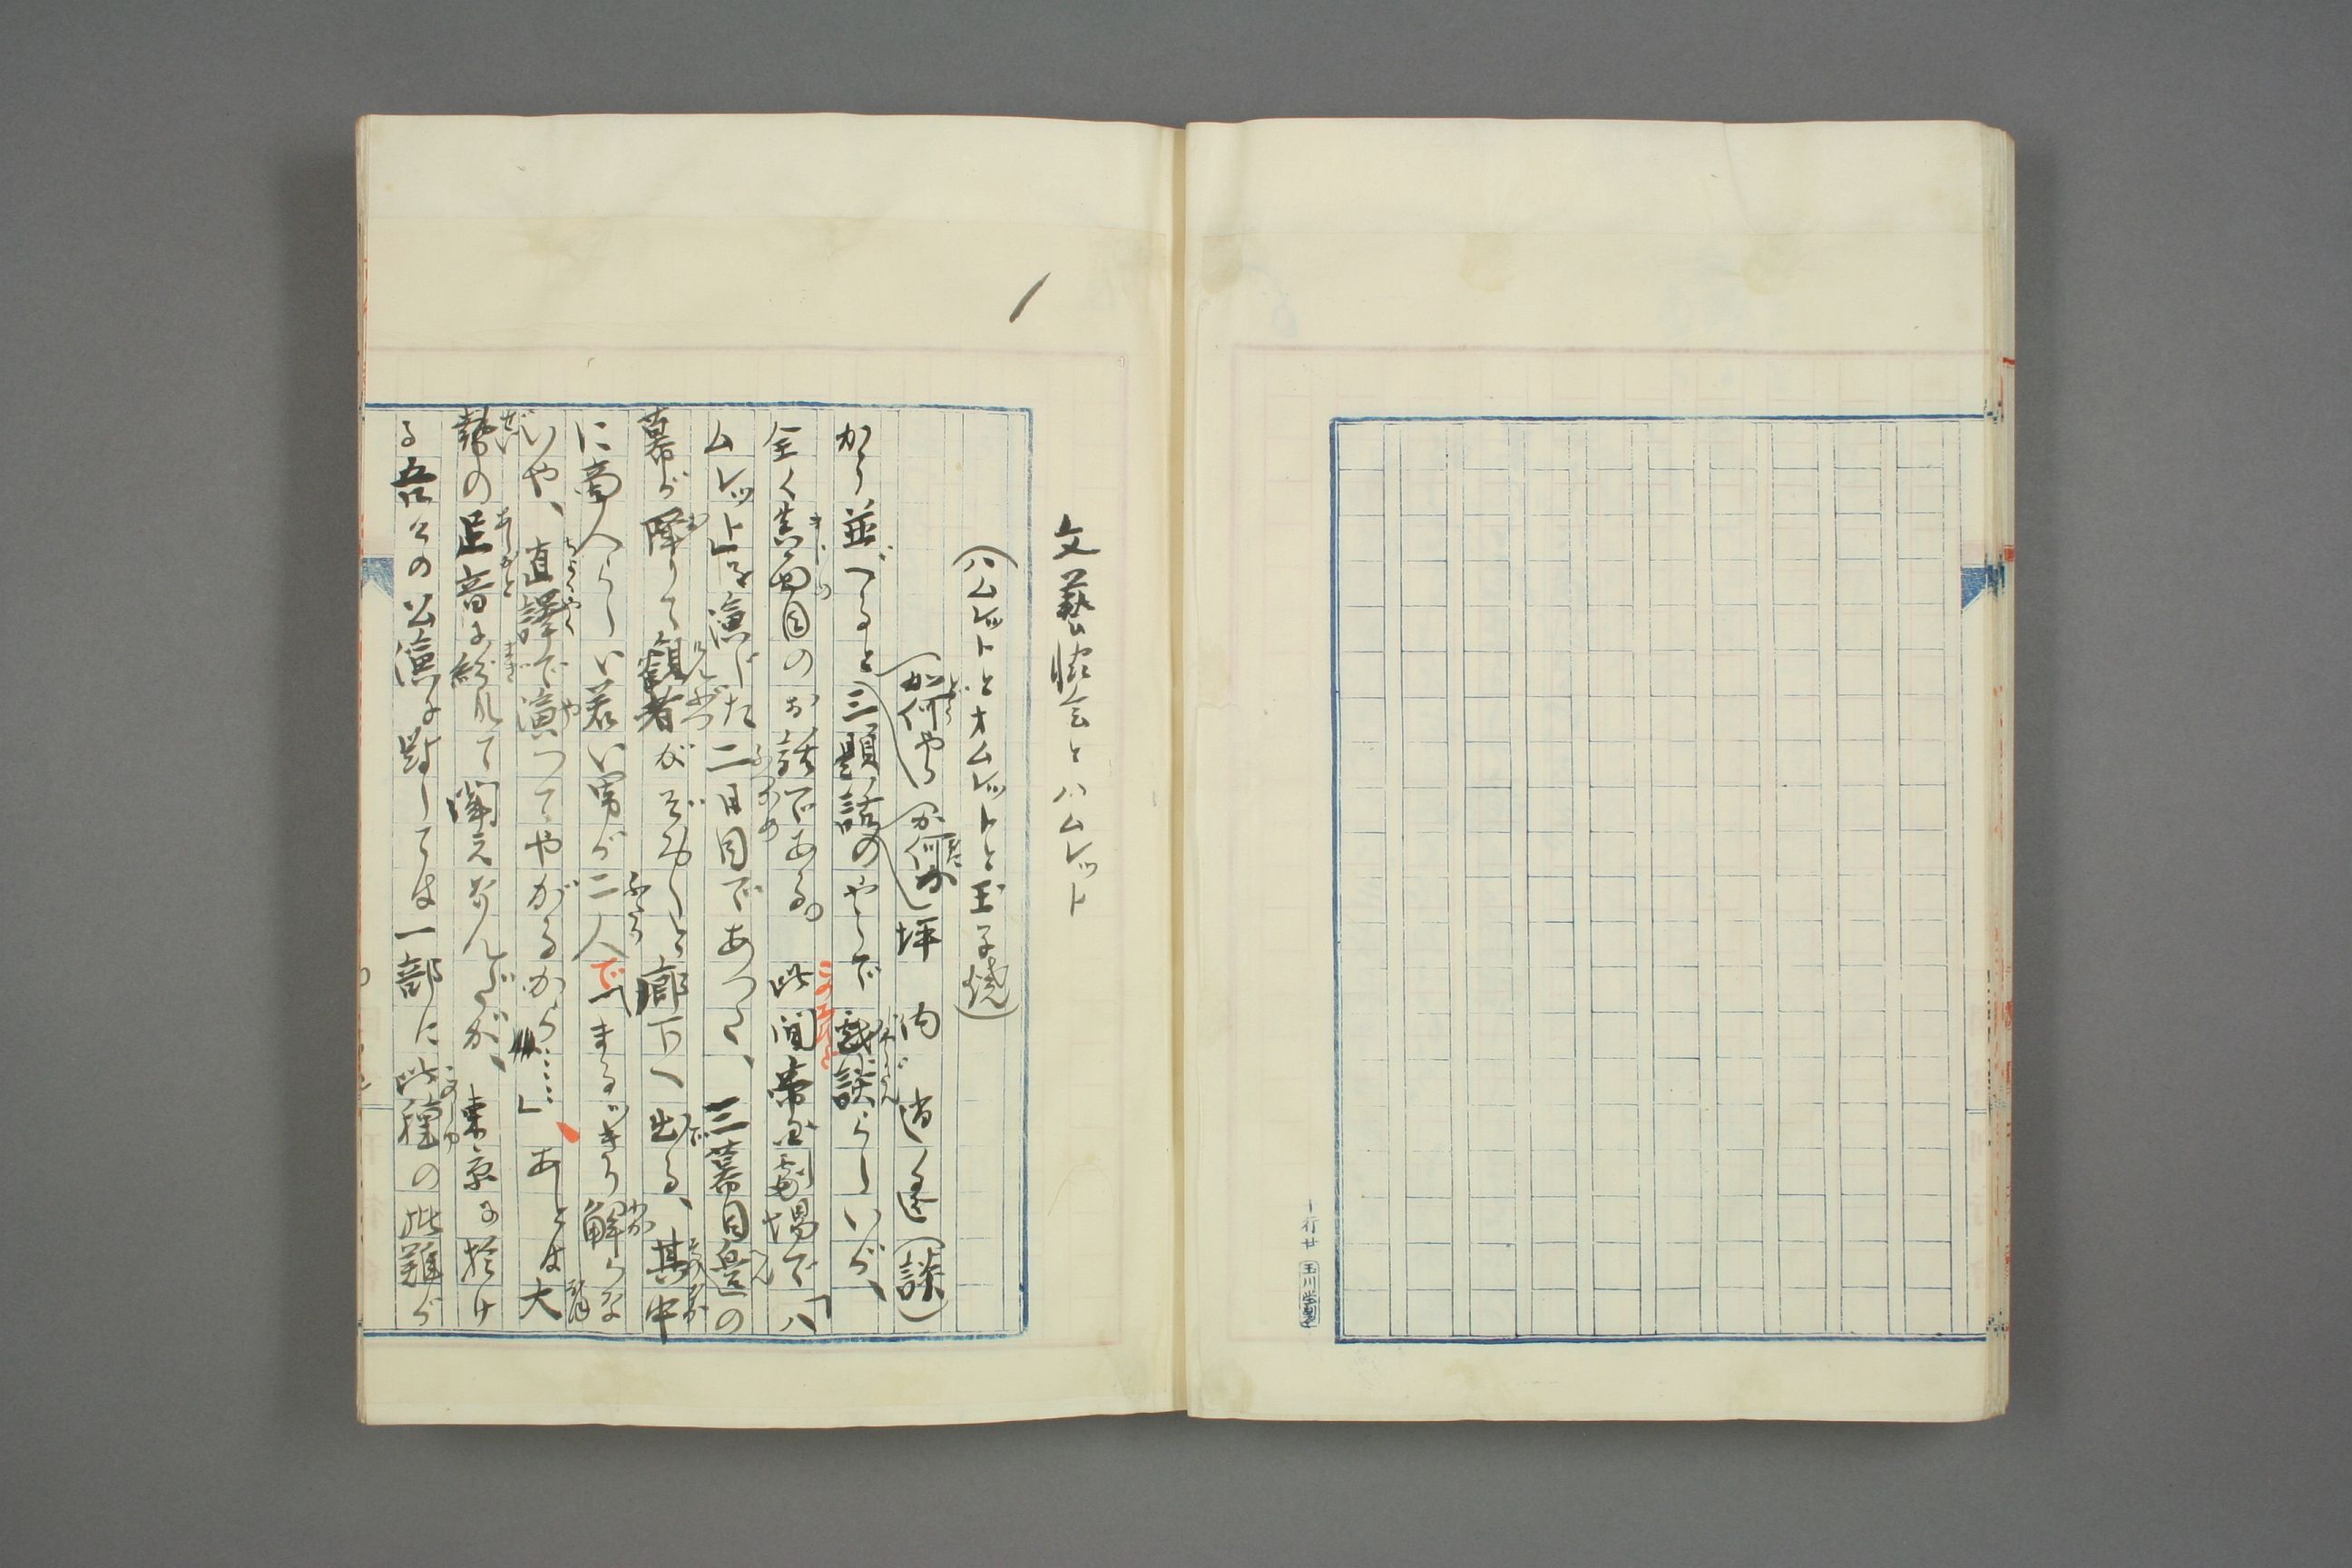 一行廿
玉川堂製
文藝協会とハムレット
(ハムレットとオムレットと玉子焼)
坪内逍遙(談)
かう並べると三題話のやうで戯談らしいが、
全く真面目のお話である。此間帝国劇場で「ハ
ムレット」を演じた二日目であつた、三幕目の
幕が降りて観者がぞろ〳〵と廊下へ出る、其中
に商人らしい若い男が二人で「まるッきり解らな
いや、直譯で演つてやがるから……」あとは大
勢の足音に紛れて聞えなんだが、東京に於け
る吾々の公演に對しては一部に此種の非難が